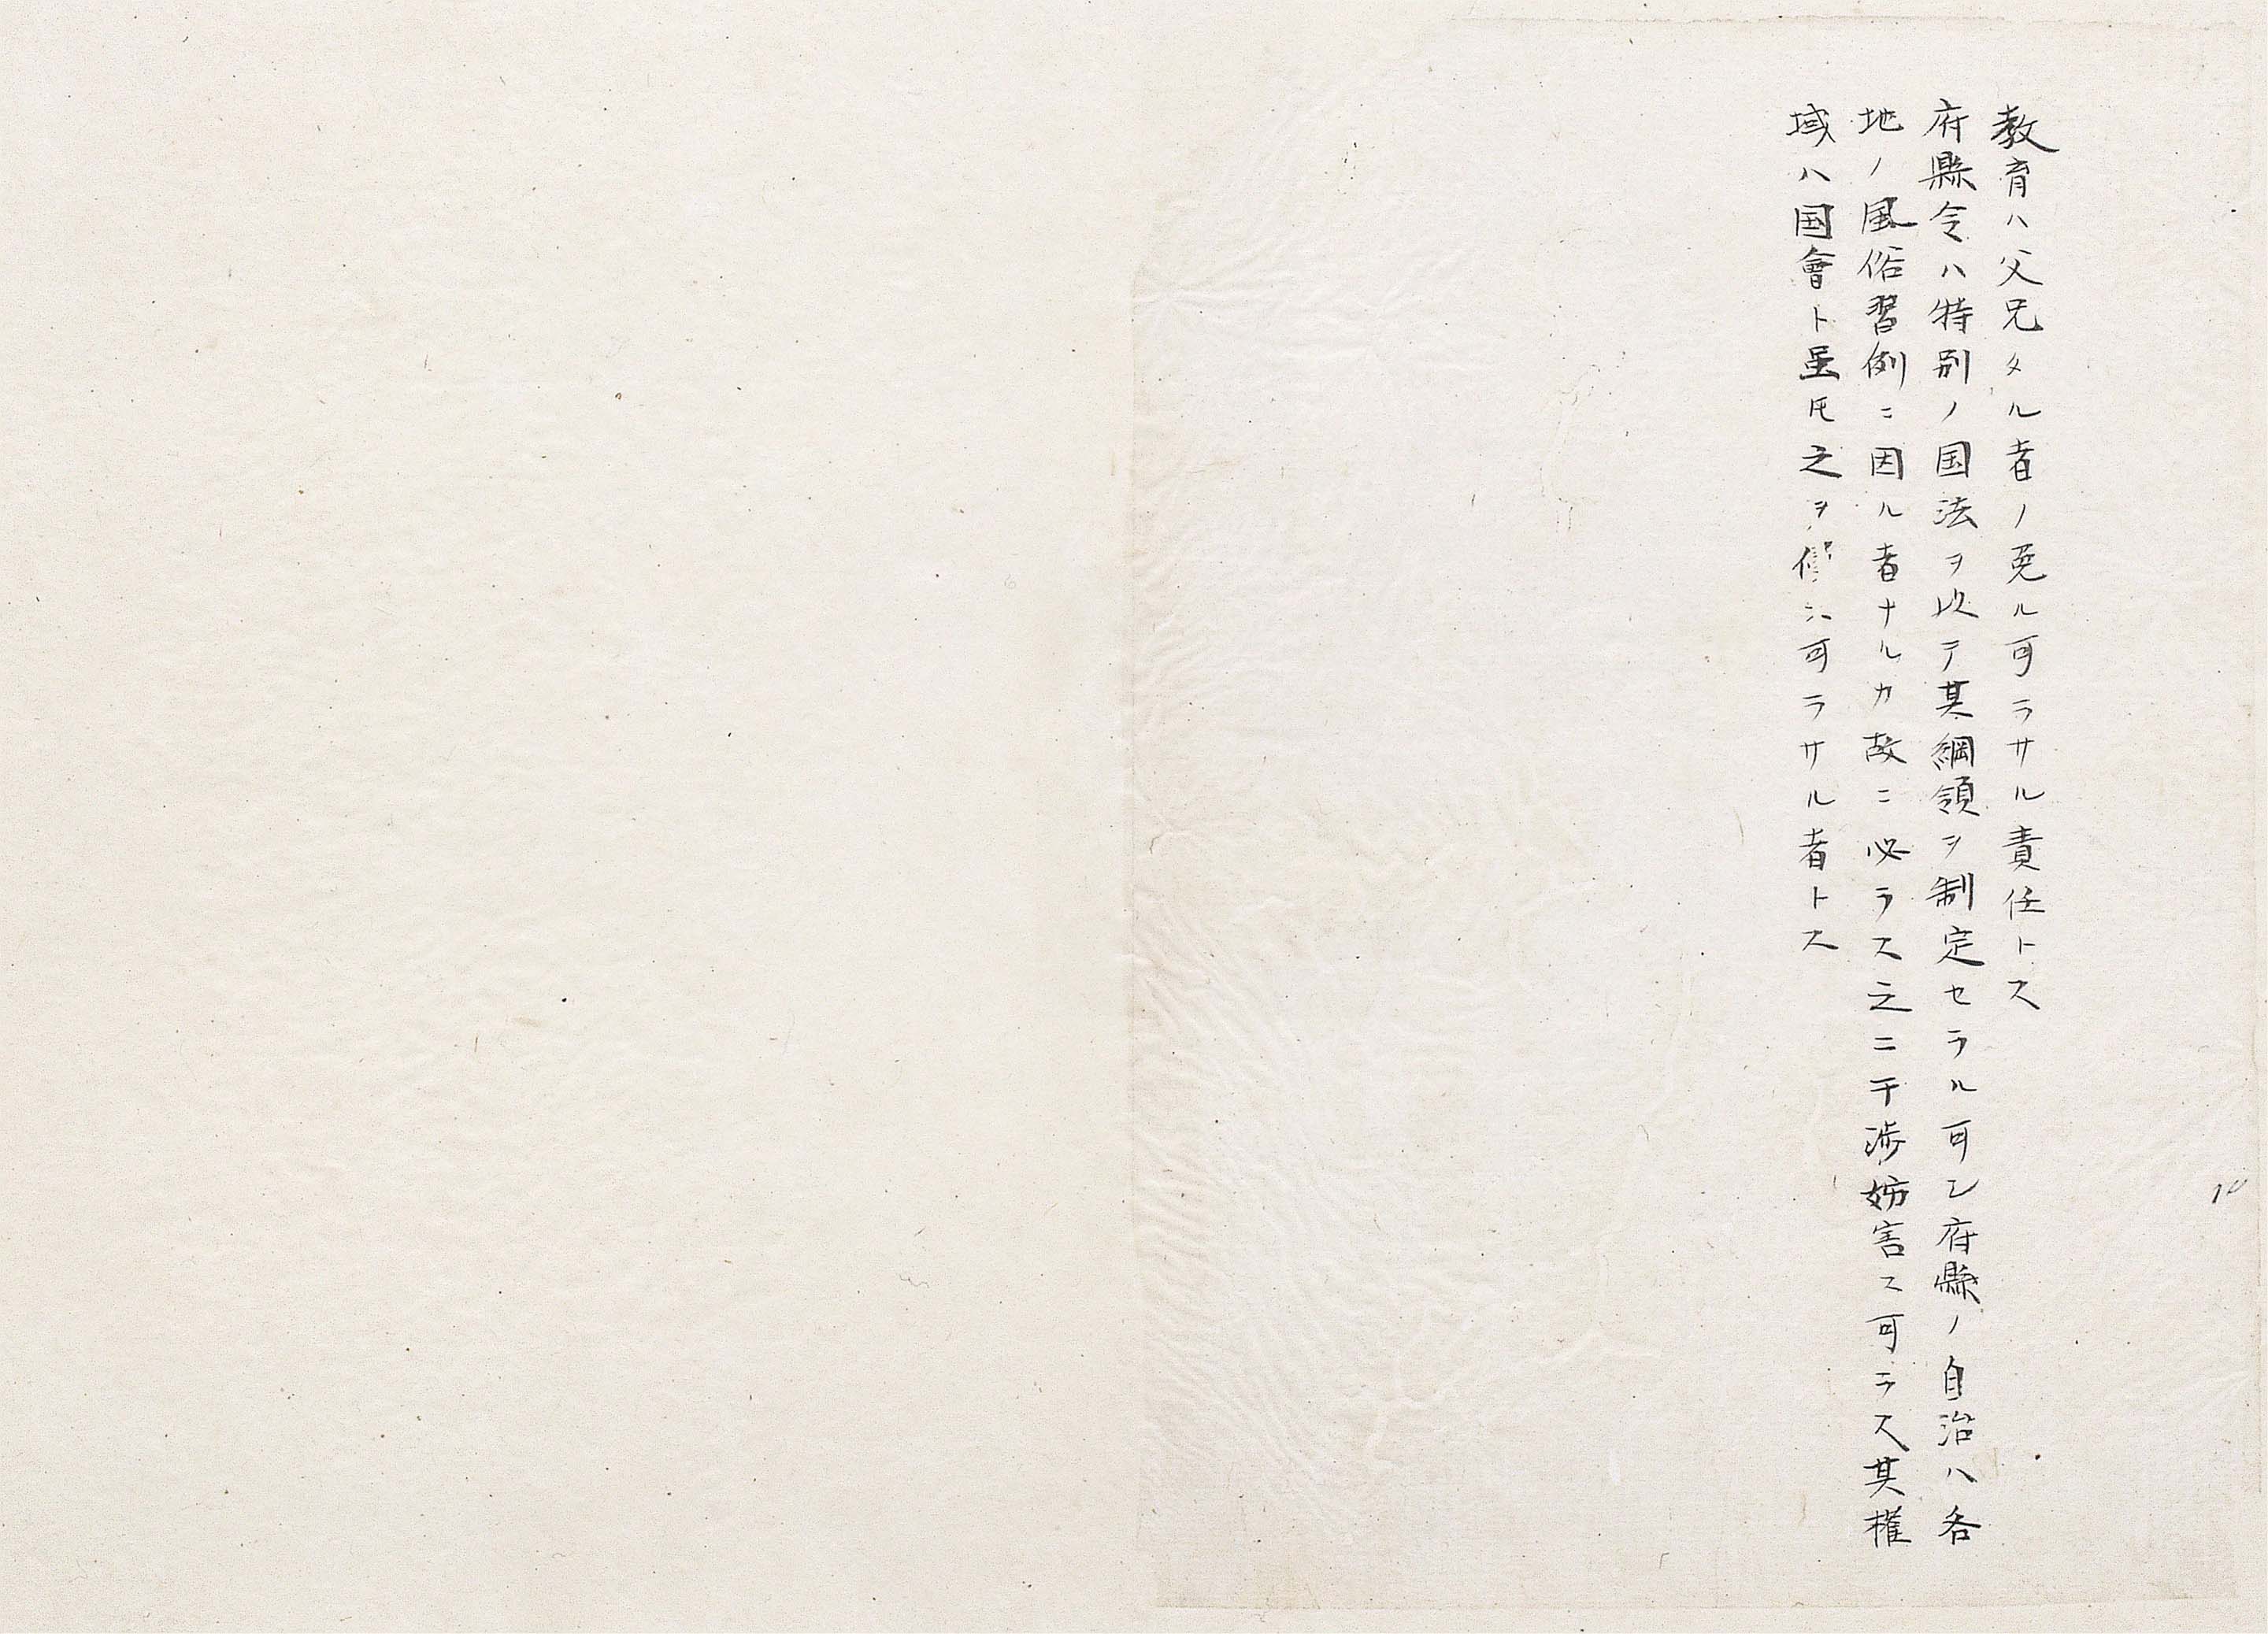 教育ハ父兄タル者ノ免ル可ラサル責任トス
府縣令ハ特別ノ国法ヲ以テ其綱領ヲ制定セラル可シ府縣ノ自治ハ各
地ノ風俗習例ニ因ル者ナルカ故ニ必ラス之ニ干渉妨害ス可ラス其權
域ハ国會ト虽𪜈之ヲ侵ス可ラサル者トス
10